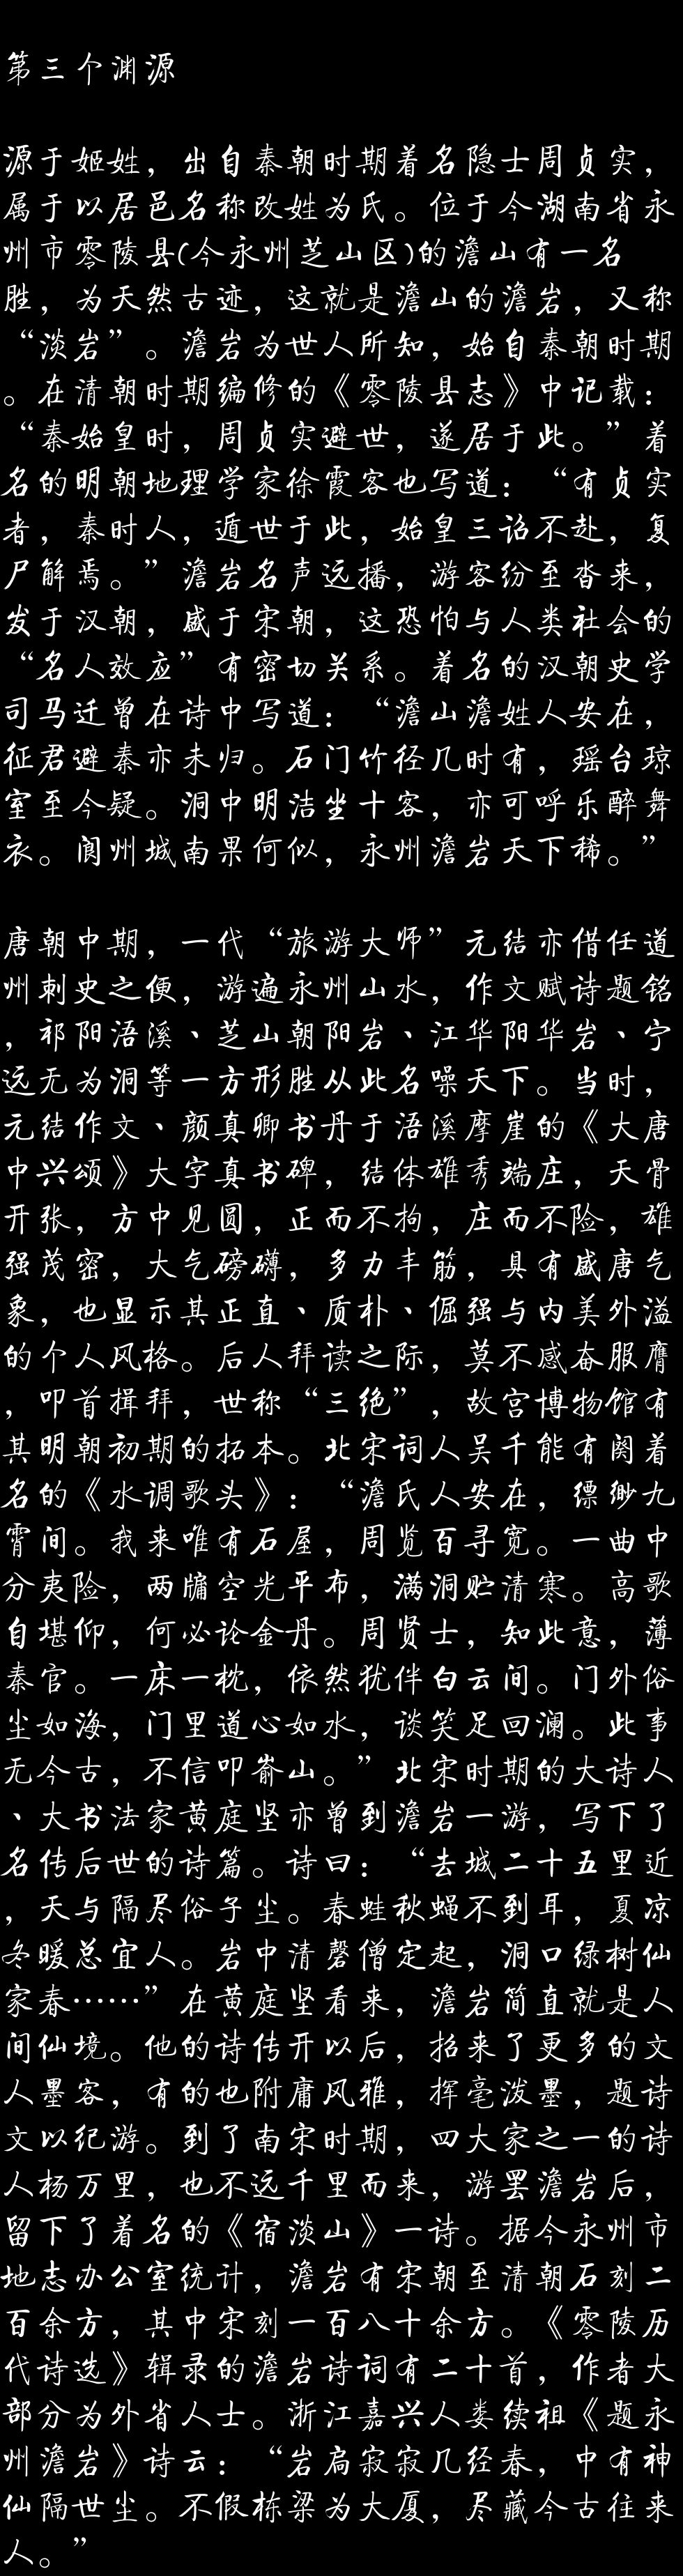 第三个渊源
源于姬姓，出自秦朝时期着名隐士周贞实，
属于以居邑名称改姓为氏。位于今湖南省永
州市零陵县(今永州芝山区)的澹山有一名
胜，为天然古迹，这就是澹山的澹岩，又称
“淡岩”。澹岩为世人所知，始自秦朝时期
。在清朝时期编修的《零陵县志》中记载：
“秦始皇时，周贞实避世，遂居于此。”着
名的明朝地理学家徐霞客也写道：“有贞实
者，秦时人，遁世于此，始皇三诏不赴，复
尸解焉。”澹岩名声远播，游客纷至沓来，
发于汉朝，盛于宋朝，这恐怕与人类社会的
“名人效应”有密切关系。着名的汉朝史学
司马迁曾在诗中写道：“澹山澹姓人安在，
征君避秦亦未归。石门竹径几时有，瑶台琼
室至今疑。洞中明洁坐十客，亦可呼乐醉舞
衣。阆州城南果何似，永州澹岩天下稀。”
唐朝中期，一代“旅游大师”元结亦借任道
州刺史之便，游遍永州山水，作文赋诗题铭
，祁阳浯溪、芝山朝阳岩、江华阳华岩、宁
远无为洞等一方形胜从此名噪天下。当时，
元结作文、颜真卿书丹于浯溪摩崖的《大唐
中兴颂》大字真书碑，结体雄秀端庄，天骨
开张，方中见圆，正而不拘，庄而不险，雄
强茂密，大气磅礴，多力丰筋，具有盛唐气
象，也显示其正直、质朴、倔强与内美外溢
的个人风格。后人拜读之际，莫不感奋服膺
，叩首揖拜，世称“三绝”，故宫博物馆有
其明朝初期的拓本。北宋词人吴千能有阕着
名的《水调歌头》：“澹氏人安在，缥缈九
霄间。我来唯有石屋，周览百寻宽。一曲中
分夷险，两牖空光平布，满洞贮清寒。高歌
自堪仰，何必论金丹。周贤士，知此意，薄
秦官。一床一枕，依然犹伴白云间。门外俗
尘如海，门里道心如水，谈笑足回澜。此事
无今古，不信叩嵛山。”北宋时期的大诗人
、大书法家黄庭坚亦曾到澹岩一游，写下了
名传后世的诗篇。诗曰：“去城二十五里近
，天与隔尽俗子尘。春蛙秋蝇不到耳，夏凉
冬暖总宜人。岩中清磬僧定起，洞口绿树仙
家春……”在黄庭坚看来，澹岩简直就是人
间仙境。他的诗传开以后，招来了更多的文
人墨客，有的也附庸风雅，挥毫泼墨，题诗
文以纪游。到了南宋时期，四大家之一的诗
人杨万里，也不远千里而来，游罢澹岩后，
留下了着名的《宿淡山》一诗。据今永州市
地志办公室统计，澹岩有宋朝至清朝石刻二
百余方，其中宋刻一百八十余方。《零陵历
代诗选》辑录的澹岩诗词有二十首，作者大
部分为外省人士。浙江嘉兴人娄续祖《题永
州澹岩》诗云：“岩扃寂寂几经春，中有神
仙隔世尘。不假栋梁为大厦，尽藏今古往来
人。”